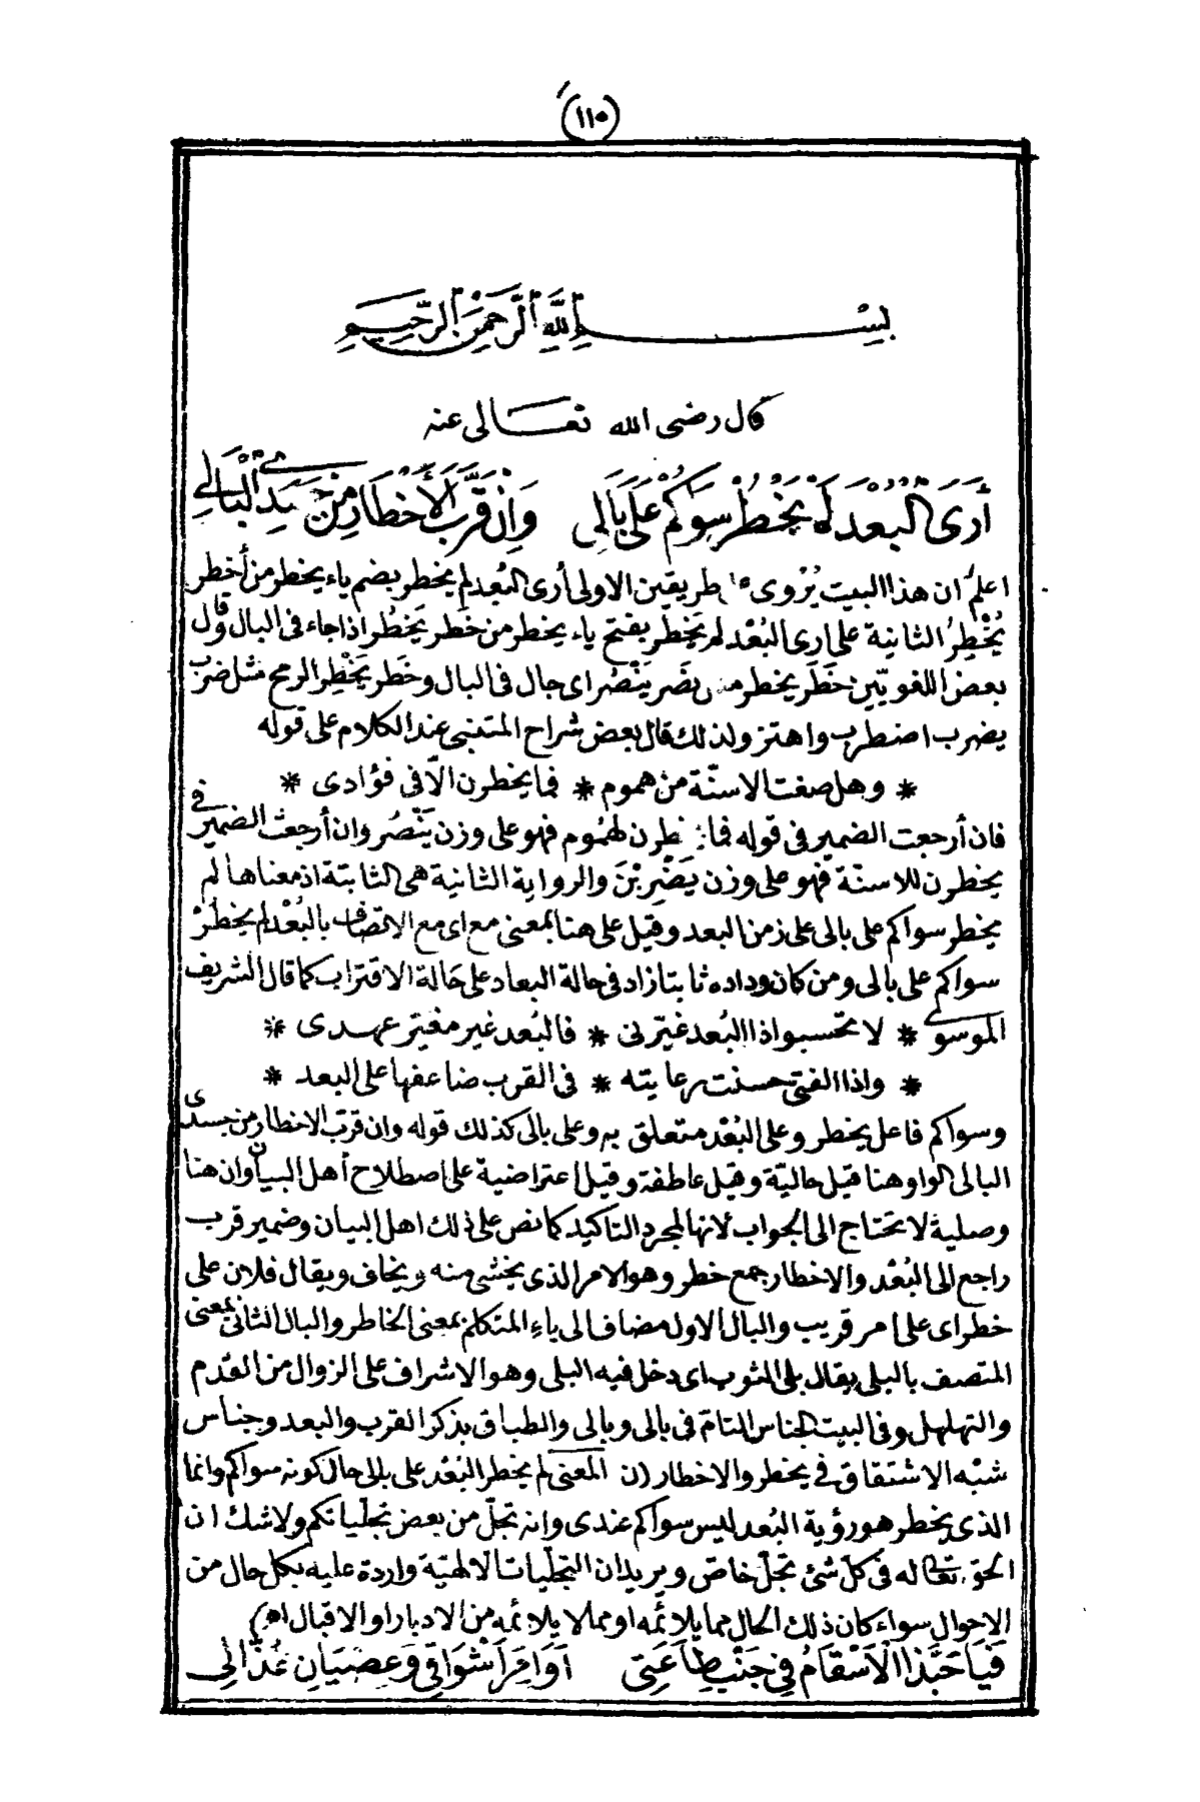 (١١٥)
بِسْمِ اللَّهِ الرَّحْمٰنِ الرَّحِيمِ
قال رضى الله تعالى عنه
أَرَى الْبُعْدَ لَمْ يَخْطُرْ سِوَاكُمْ عَلَى بَالِى وَإِنْ قَرَّبَ الْأَخْطَارَ مِنْ جَسَدِى الْبَالِي
اعلم ان هذا البيت يُرْوى طريقين الاولى أرى البُعد لم يخطر بضم ياء يخطر من أخطر
يُخْطِرُ الثانية على ارى البُعْد لم يَخْطِر بفتح ياء يخطر من خَطَر يَخطُر اذا جاء فى البال وقال
بعض اللغويّين خَطَرَ يخطر من نصَر يَنْصُر اى جال فى البال وخَطَر يَخْطِر الرمح مثل ضرَب
يضرب اضطرب واهتز ولذلك قال بعض شراح المتنبى عند الكلام على قوله
* وهل صغت الاسنّة من هموم * فما يخطرن الّا فى فؤادى *
فان أرجعت الضمير فى قوله فما يخطرن لهُموم فهو على وزن يَنْصُر وان أرجعت الضمير فى
يخطرن للاسنّة فهو على وزن يَضْرِبْنَ والرواية الثانية هى الثابتة اذ معناها لم
يخطر سواكم على بالى على زمن البعد وقيل على هنا بمعنى مع اى مع الاتصاف بالبُعْد لم يخطُرْ
سواكم على بالى ومن كان وداده ثابتا زاد فى حالة البعاد على حَالة الاقتراب كما قال الشريف
الموسوى * لا تحسبوا ذا البُعد غيّرنى * فالبُعد غير مغير عهدى *
* واذا الفتى حسنت رعايته * فى القرب ضاعفها على البعد *
وسواكم فاعل يخطر وعلى البُعْد متعلق به وعلى بالى كذلك قوله وان قرّب الاخطار من جسدى
البالى الواو هنا قيل حاليّة وقيل عاطفة وقيل اعتراضية على اصطلاح أهل البيان وان هنا
وصلية لا تحتاج الى الجواب لأنها لمجرد التاكيد كما نص على ذلك اهل البيان وضمير قرب
راجع الى البُعْد والاخطار جمع خطر وهو الامر الذى يخشى منه ويخاف ويقال فلان على
خطر اى على امر قريب والبال الاول مضاف الى ياء المتكلم بمعنى الخاطر والبال الثانى بمعنى
المتصف بالبلى يقال بلى الثوب اى دخل فيه البلى وهو الاشراف على الزوال من القدم
والتهلهل وفى البيت الجناس التامّ فى بالى وبالى والطباق بذكر القرب والبعد وجناس
شبْه الاشتقاق فى يخطر والاخطار (ن المعنى لم يخطر البُعْد على بالى حال كونه سواكم وانما
الذى يخطر هو رؤية البُعد ليس سواكم عندى وانه تجلّ من بعض تجلّياتكم ولا شك ان
الحق تعالى له فى كلّ شئ تجلّ خاصّ ويريد ان التجلّيات الالهيّة واردة عليه بكل حال من
الاحوال سواء كان ذلك الحال مما يلائمه او مما لا يلائمه من الادبار او الاقبال اھ)
فَيَا حَبَّذَا الْأَسْقَامُ فِى جَنْبِ طَاعَتِى أَوَامِرَ أَشْوَاقِى وَعِصْيَانِ عُذَّالِى